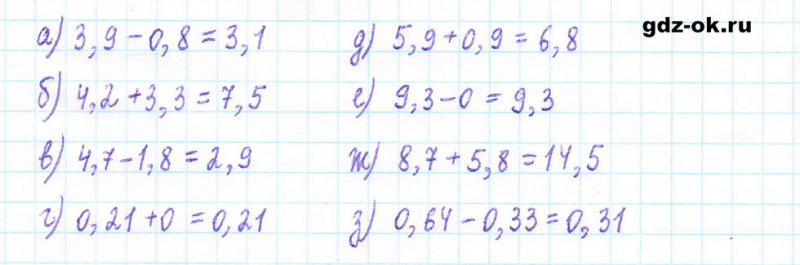 gdz-ok.ru
а) 3,9 - 0,8 = 3,1
б) 4,2 + 3,3 = 7,5
в) 4,7 - 1,8 = 2,9
г) 0,21 + 0 = 0,21
д) 5,9 + 0,9 = 6,8
е) 9,3 - 0 = 9,3
ж) 8,7 + 5,8 = 14,5
з) 0,64 - 0,33 = 0,31